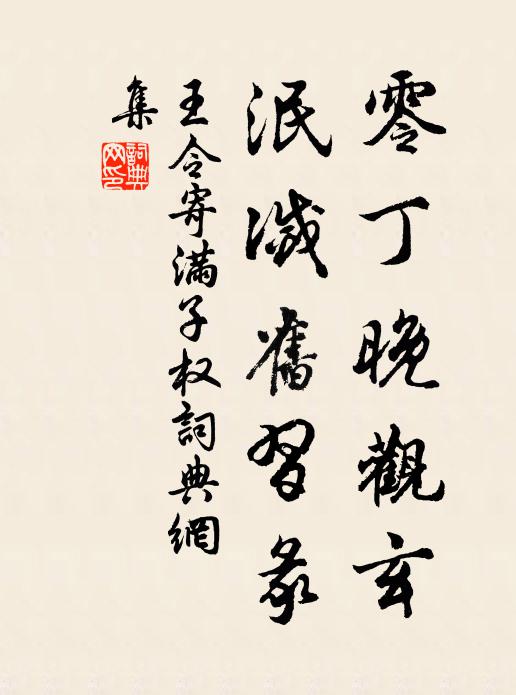 零丁晚觀玄
泯滅舊習彖
王令寄滿子权詞典網
集
詞典網印